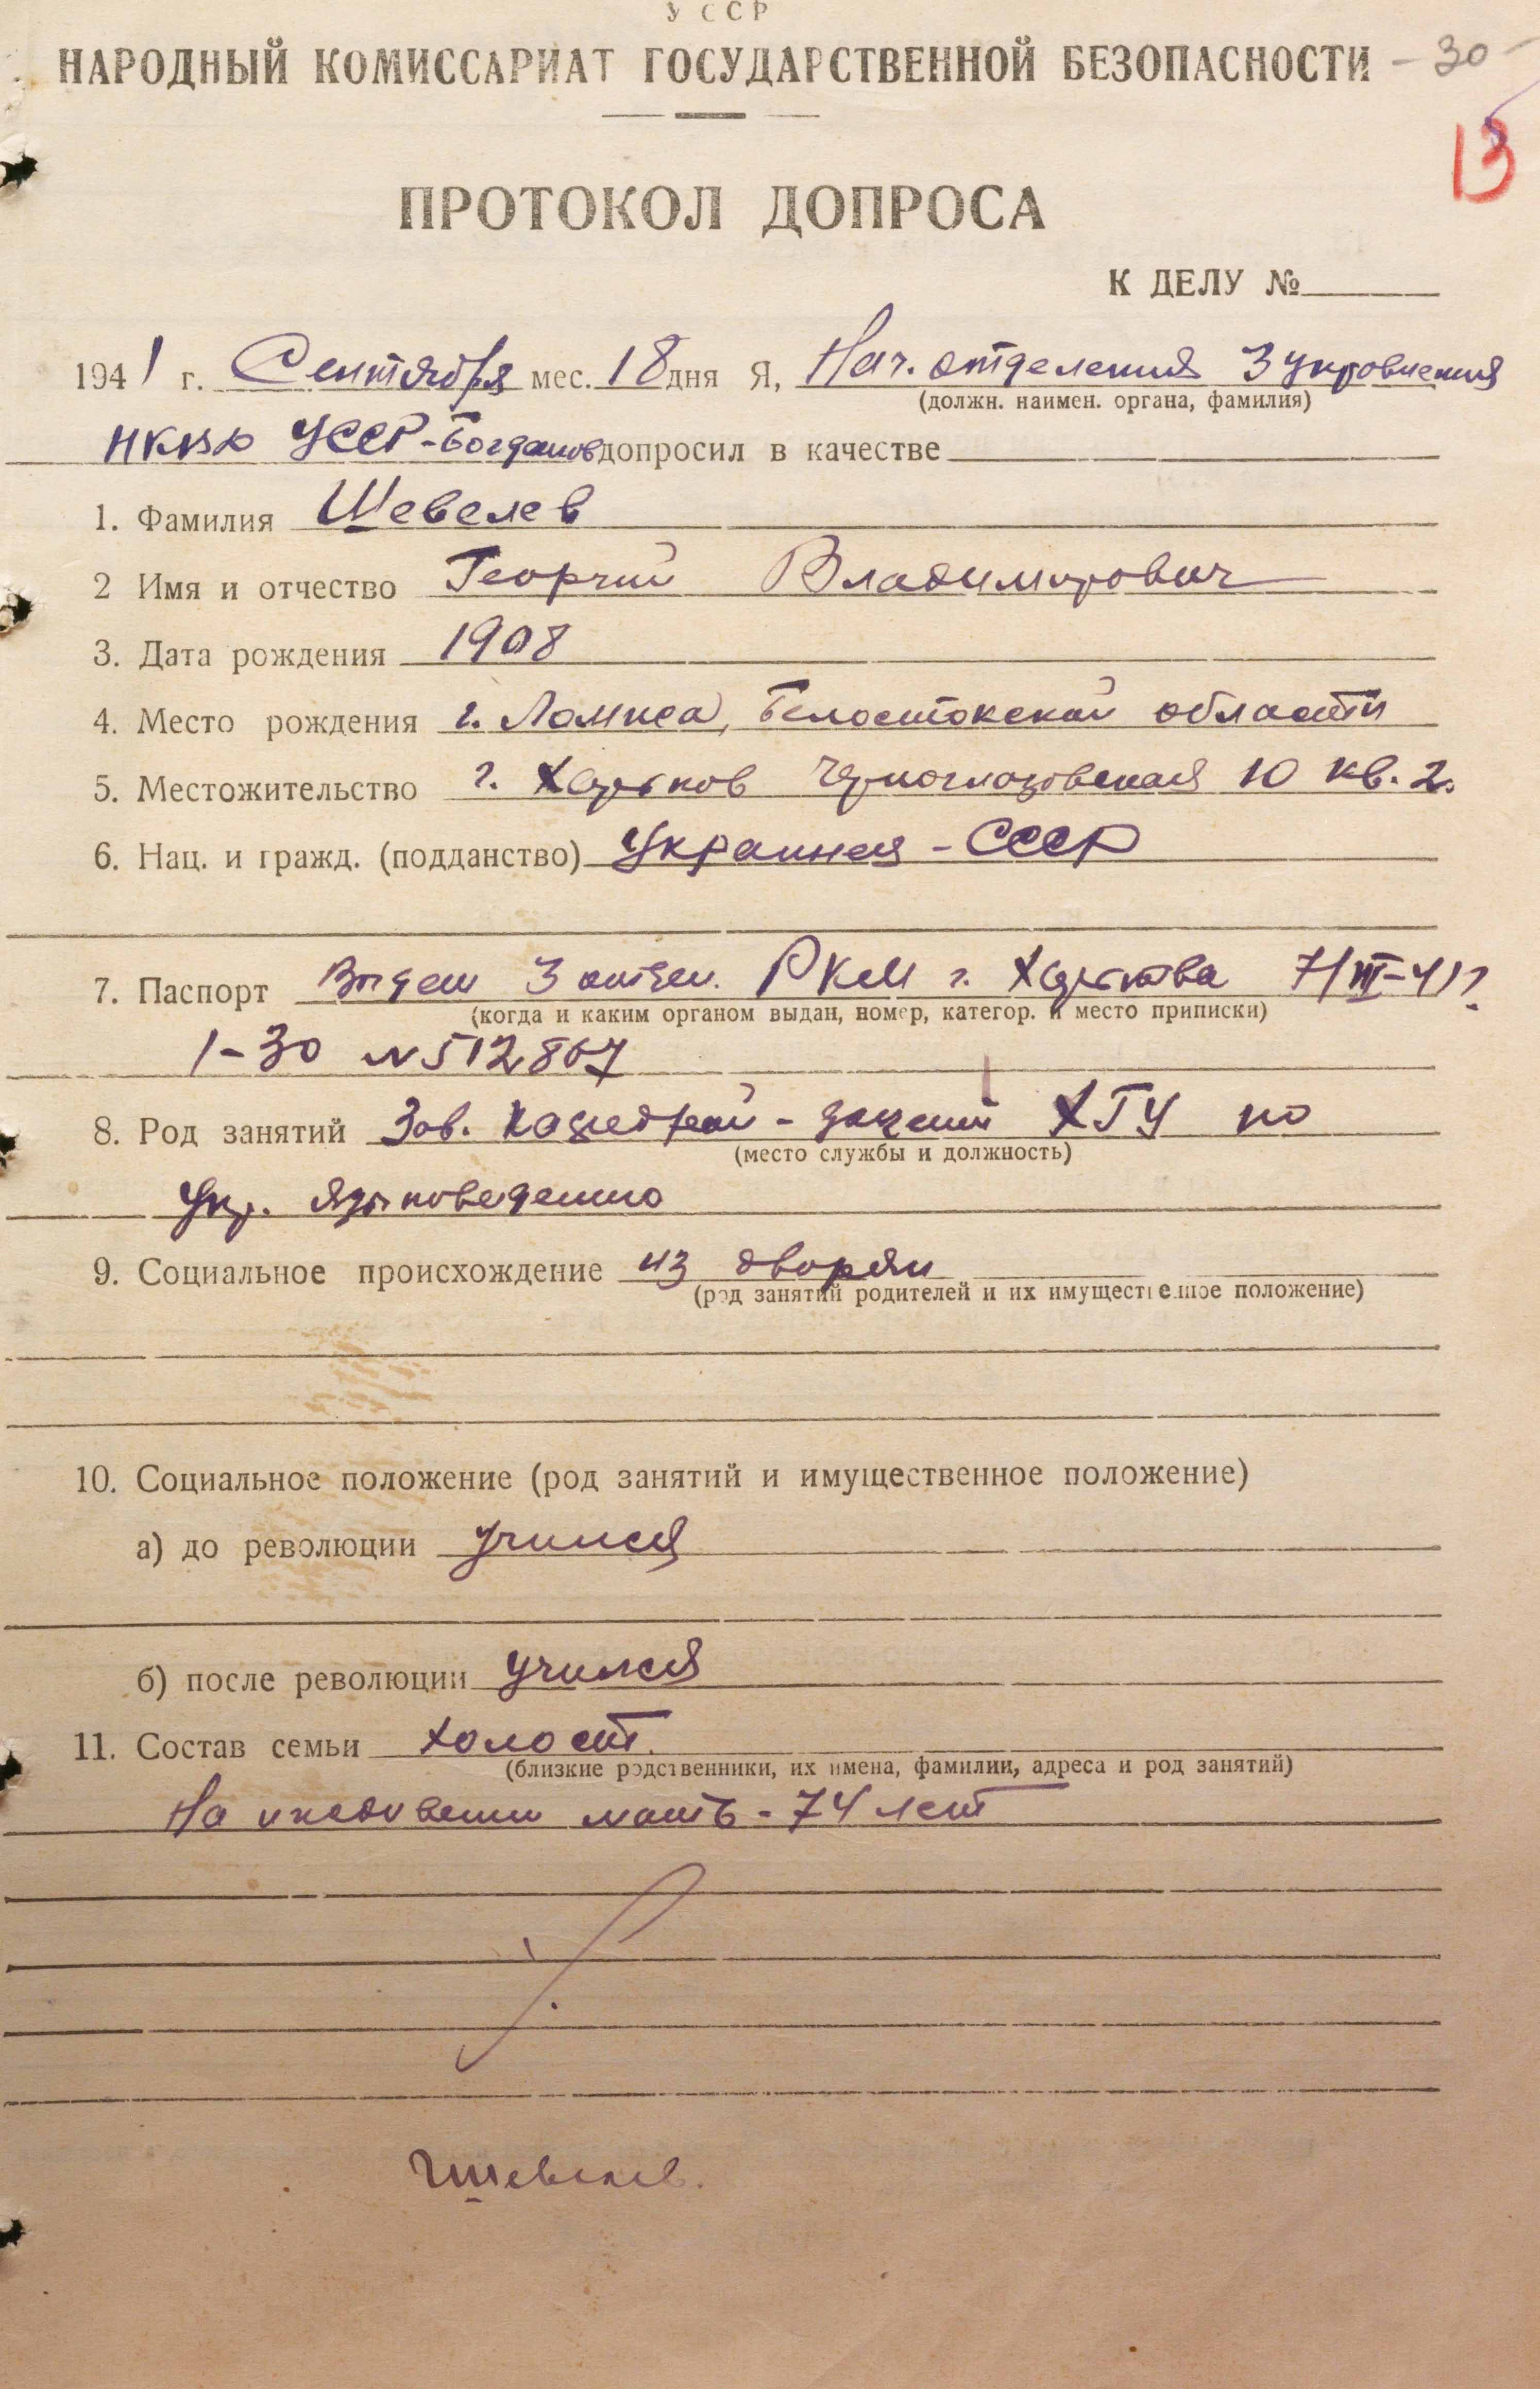 УССР
НАРОДНЫЙ КОМИССАРИАТ ГОСУДАРСТВЕННОЙ БЕЗОПАСНОСТИ - 30 -
13
ПРОТОКОЛ ДОПРОСА
К ДЕЛУ №
1941 г. Сентября мес. 18 дня Я, Нач. отделения 3 управления
(должн. наимен. органа, фамилия)
НКВД УССР - Богданов допросил в качестве
1. Фамилия Шевелев
2 Имя и отчество Георгий Владимирович
3. Дата рождения 1908
4. Место рождения г. Ломжа, Белостокской области
5. Местожительство г. Харьков Черноглазовская 10 кв. 2.
6. Нац. и гражд. (подданство) Украинец - СССР
7. Паспорт Выдан 3 отдел. РКМ г. Харькова 7/III-41 г.
(когда и каким органом выдан, номер, категор. и место приписки)
1-30 N 512867
8. Род занятий Зав. кафедрой - доцент ХГУ по
(место службы и должность)
Укр. языковедению
9. Социальное происхождение из дворян
(род занятий родителей и их имущественное положение)
10. Социальное положение (род занятий и имущественное положение)
а) до революции учился
б) после революции учился
11. Состав семьи холост.
(близкие родственники, их имена, фамилии, адреса и род занятий)
На иждивении мать - 74 лет
Гшевелев.